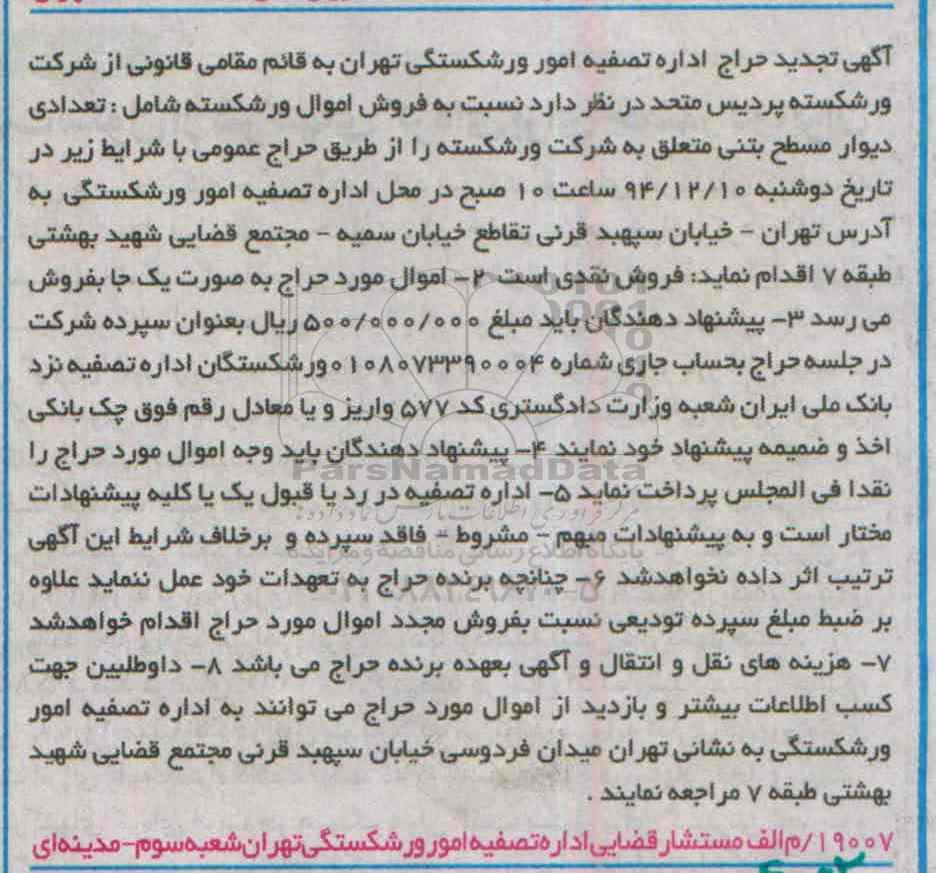 آگهی تجدید حراج اداره تصفیه امور ورشکستگی تهران به قائم مقامی قانونی از شرکت
ورشکسته پردیس متحد در نظر دارد نسبت به فروش اموال ورشکسته شامل : تعدادی
دیوار مسطح بتنی متعلق به شرکت ورشکسته را از طریق حراج عمومی با شرایط زیر در
تاریخ دوشنبه ۹۴/۱۲/۱۰ ساعت ۱۰ صبح در محل اداره تصفیه امور ورشکستگی به
آدرس تهران - خیابان سپهبد قرنی تقاطع خیابان سمیه - مجتمع قضایی شهید بهشتی
طبقه ۷ اقدام نماید: فروش نقدی است ۲- اموال مورد حراج به صورت یک جا بفروش
می رسد ۳- پیشنهاد دهندگان باید مبلغ ۵۰۰/۰۰۰/۰۰۰ ریال بعنوان سپرده شرکت
در جلسه حراج بحساب جاری شماره ۰۱۰۸۰۷۳۳۹۰۰۰۴ ورشکستگان اداره تصفیه نزد
بانک ملی ایران شعبه وزارت دادگستری کد ۵۷۷ واریز و یا معادل رقم فوق چک بانکی
اخذ و ضمیمه پیشنهاد خود نمایند ۴- پیشنهاد دهندگان باید وجه اموال مورد حراج را
ParsNamadData
نقدا فی المجلس پرداخت نماید ۵- اداره تصفیه در رد یا قبول یک یا کلیه پیشنهادات
مختار است و به پیشنهادات مبهم - مشروط - فاقد سپرده و برخلاف شرایط این آگهی
پایگاه اطلاع رسانی مناقصه و مزایده
ترتیب اثر داده نخواهدشد ۶- چنانچه برنده حراج به تعهدات خود عمل ننماید علاوه
بر ضبط مبلغ سپرده تودیعی نسبت بفروش مجدد اموال مورد حراج اقدام خواهدشد
۷- هزینه های نقل و انتقال و آگهی بعهده برنده حراج می باشد ۸- داوطلبین جهت
کسب اطلاعات بیشتر و بازدید از اموال مورد حراج می توانند به اداره تصفیه امور
ورشکستگی به نشانی تهران میدان فردوسی خیابان سپهبد قرنی مجتمع قضایی شهید
بهشتی طبقه ۷ مراجعه نمایند .
۱۹۰۰۷/م الف مستشار قضایی اداره تصفیه امور ورشکستگی تهران شعبه سوم-مدینه ای